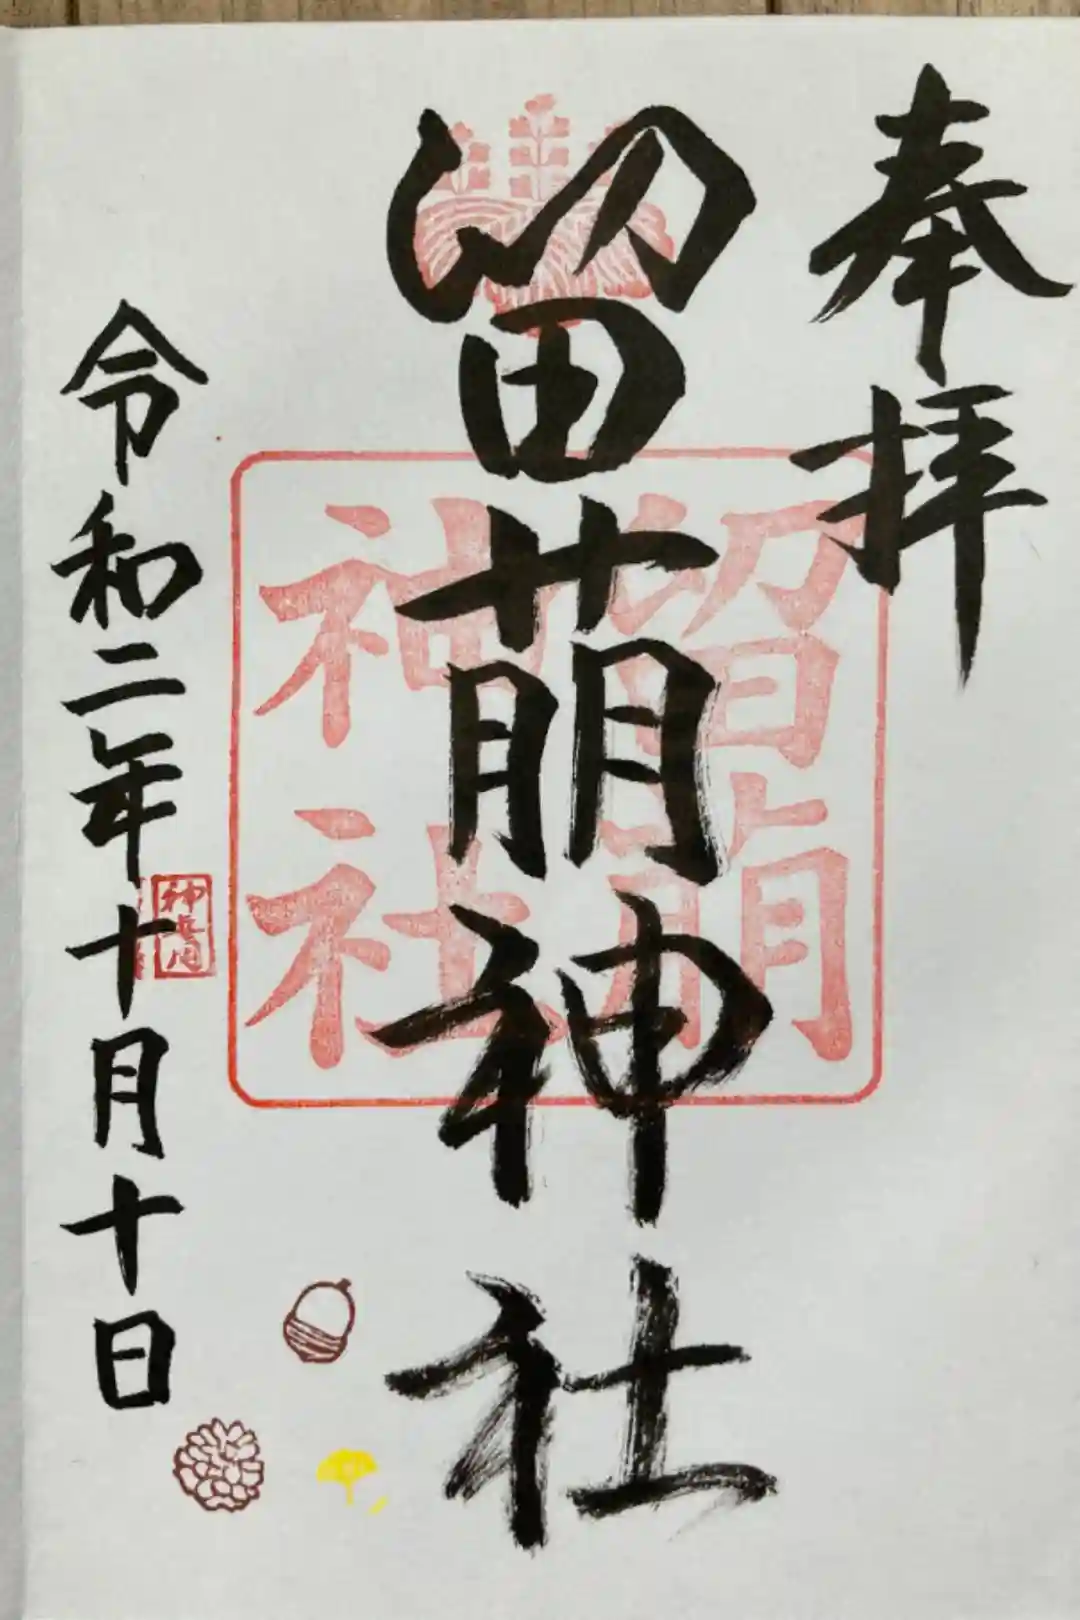 奉拝
留萌神社
留萌
神社
令和二年十月十日